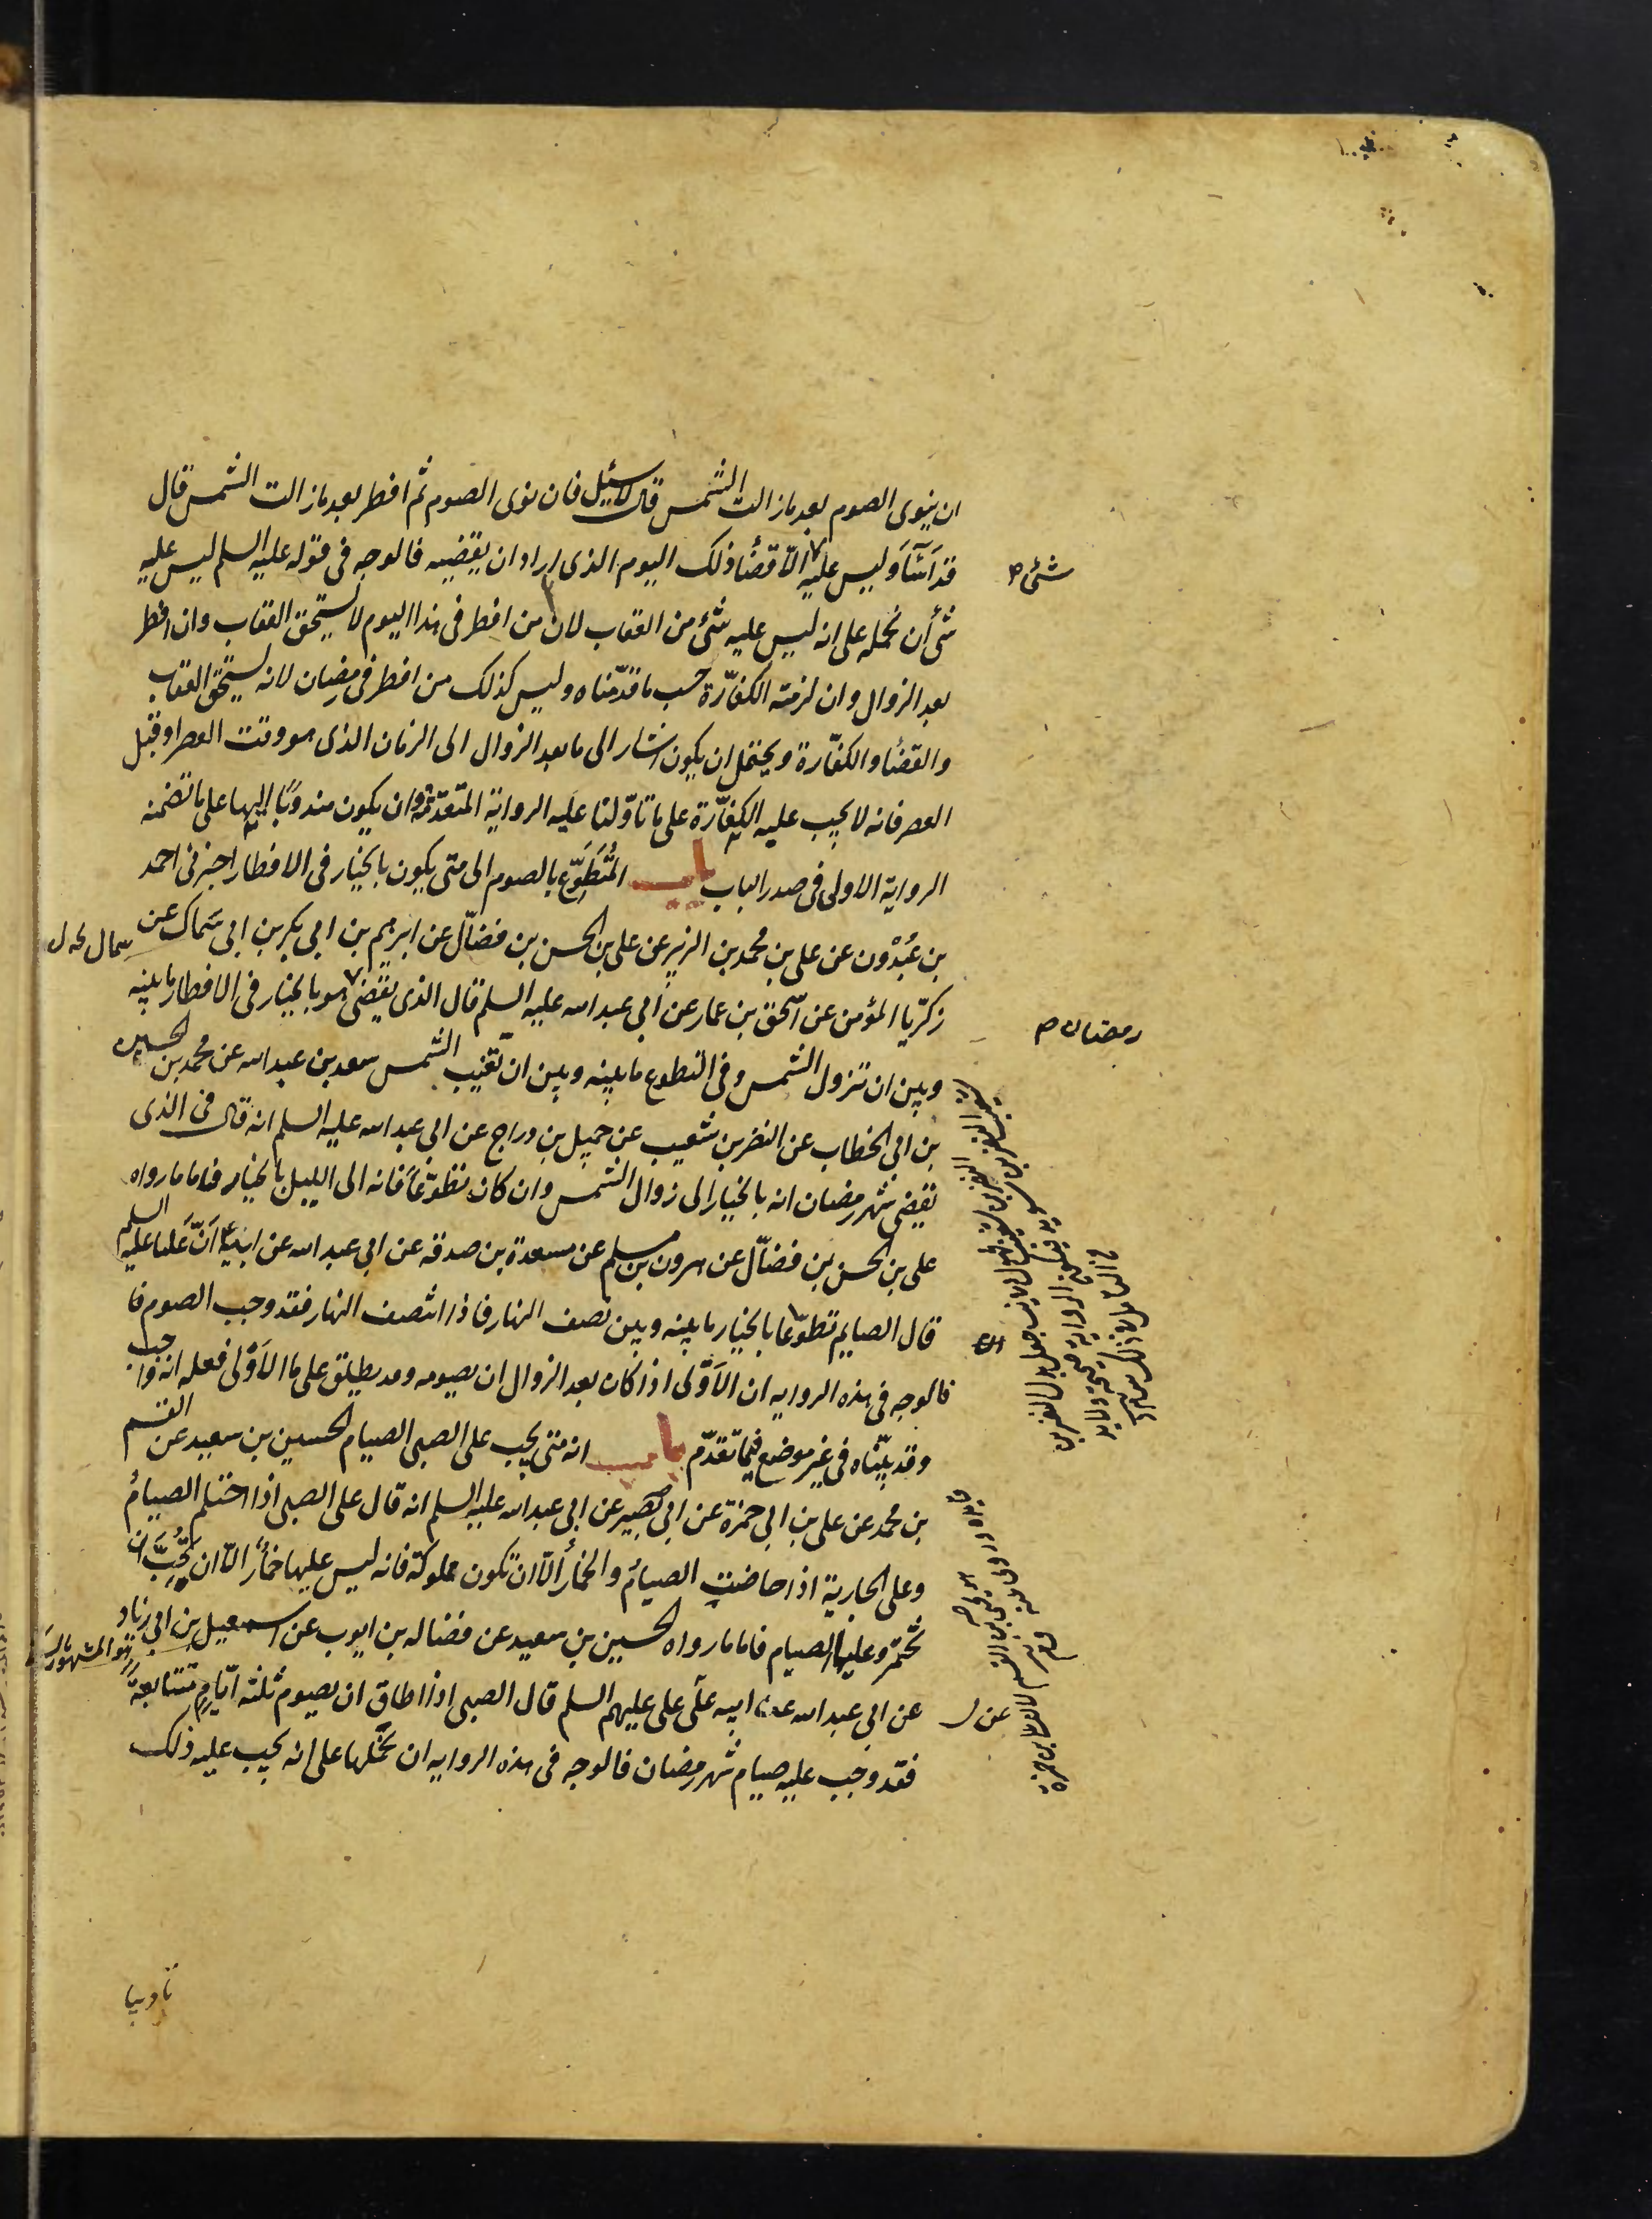 ان ينوى الصوم بعد ما زالت الشمس قال لا سئل فان نوى الصوم ثم افطر بعد ما زالت الشمس قال
قد اَسَآَ وَليس عليه الّا قضأ ذلك اليوم الذى اراد ان يقضيه فالوجه فى قوله عليه السلم ليس عليه
شئ ان نحمله على انه ليس عليه شئ من العقاب لان من افطر فى هذا اليوم لا يستحق العقاب وان افطر
بعد الزوال وان لزمته الكفّارة حسب ما قدّمناه وليس كذلك من افطر فى رمضان لانه يستحق العقاب
والقضأ والكفّارة ويحتمل ان يكون اشار الى ما بعد الزوال الى الزمان الذى هو وقت العصر او قبل
العصر فانه لا يجب عليه الكفّارة على ما تاوّلنا عليه الرواية المتقدّمة وان يكون مندوبًا اليها على ما تضمنه
الرواية الاولى فى صدر الباب باب المُتَطَوِّع بالصوم الى متى يكون بالخيار فى الافطار اخبرنى احمد
بن عُبْدُون عن على بن محمد بن الزبير عن على بن الحسن بن فضّال عن ابرهيم بن ابى بكر بن ابى سَمَاك عن
زكريّا المؤمن عن اسحق بن عمار عن ابى عبد الله عليه السلم قال الذى يقضى هو بالخيار فى الافطار ما بينه
وبين ان تزول الشمس وفى التطوع ما بينه وبين ان تغيب الشمس سعد بن عبد الله عن محمد بن الحسين
بن ابى الخطاب عن النضر بن شعيب عن جميل بن دراج عن ابى عبد الله عليه السلم انه قال فى الذى
يقضى شهر رمضان انه بالخيار الى زوال الشمس وان كان تطوّعًا فانه الى الليل بالخيار فاما ما رواه
على بن الحسن بن فضّال عن هرون بن مسلم عن مسعدة بن صدقه عن ابى عبد الله عن ابيه انّ عليا عليه السلم
قال الصايم تطوّعًا بالخيار ما بينه وبين نصف النهار فاذا انتصف النهار فقد وجب الصوم فا
فالوجه فى هذه الروايه ان الاَوْلى اذا كان بعد الزوال ان يصومه وقد يطلق على ما الاَوْلى فعله انه واجب
وقد بيّنّاه فى غير موضع فيما تقدّم باب انه متى يجب على الصبى الصيام الحسين بن سعيد عن القسم
بن محمد عن على بن ابى حمزة عن ابى بصير عن ابى عبد الله عليه السلم انه قال على الصبى اذا احتلم الصيامُ
وعلى الجارية اذا حاضتِ الصيامُ والخمارُ الّا ان تكون مملوكة فانه ليس عليها خمارٌ الّا ان تُحِبَّ ان
تختمر وعليها الصيام فاما ما رواه الحسين بن سعيد عن فضاله بن ايوب عن اسمعيل بن ابى زناد
عن ابى عبد الله عن ابيه عن على عليهم السلم قال الصبى اذا اطاق ان يصوم ثلثة ايّامٍ متتابعةً
فقد وجب عليه صيام شهر رمضان فالوجه فى هذه الروايه ان نحملها على انه يجب عليه ذلك
شئ
رمضان
عن
تاديبا